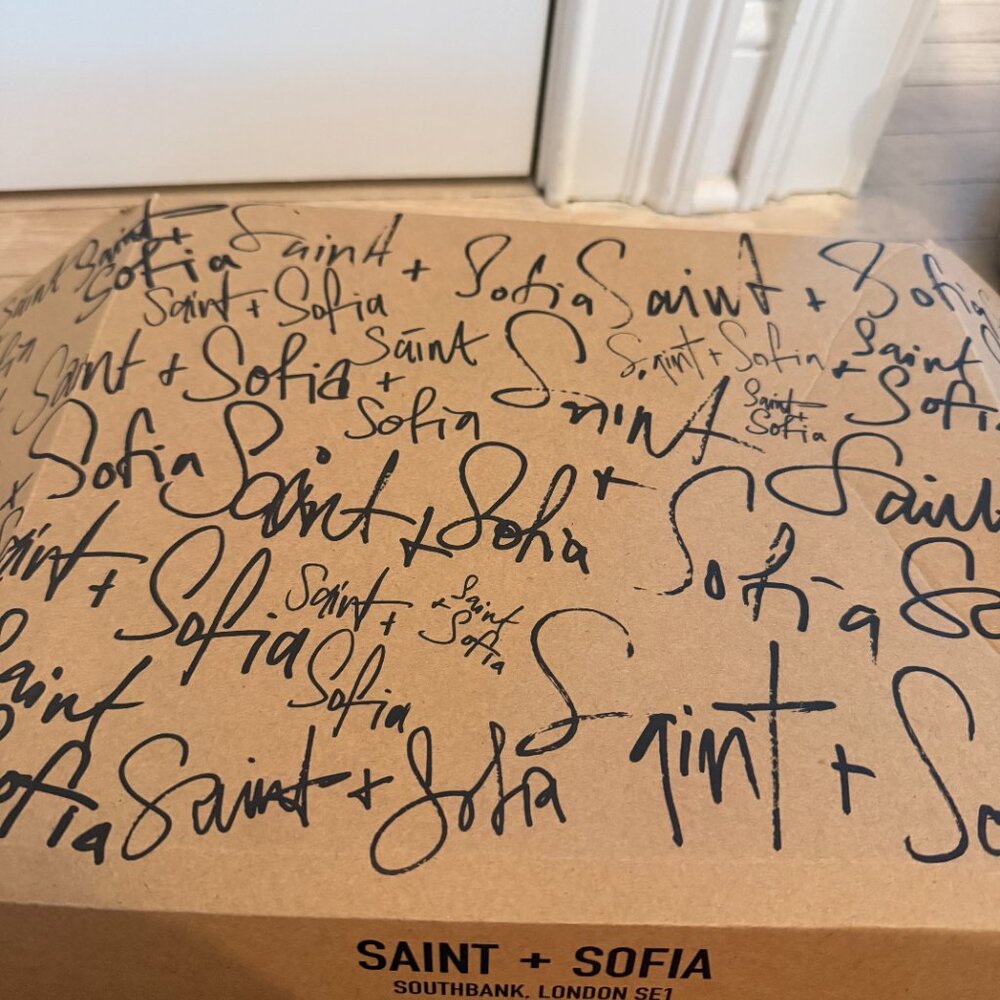 Saint
+
Sofia
Saint + Sofia Saint + Sofia
Saint + Sofia
Saint + Sofia
Saint
+
Sofia
Saint + Sofia
Saint + Sofia
Saint
+
Sofia
Saint +
Sofia
Sofia Saint + Sofia
Saint
Saint + Sofia
Saint +
Sofia
Saint
+ Sofia
Saint
Sofia
Saint + Sofia
Saint + So
SAINT + SOFIA
SOUTHBANK, LONDON SE1